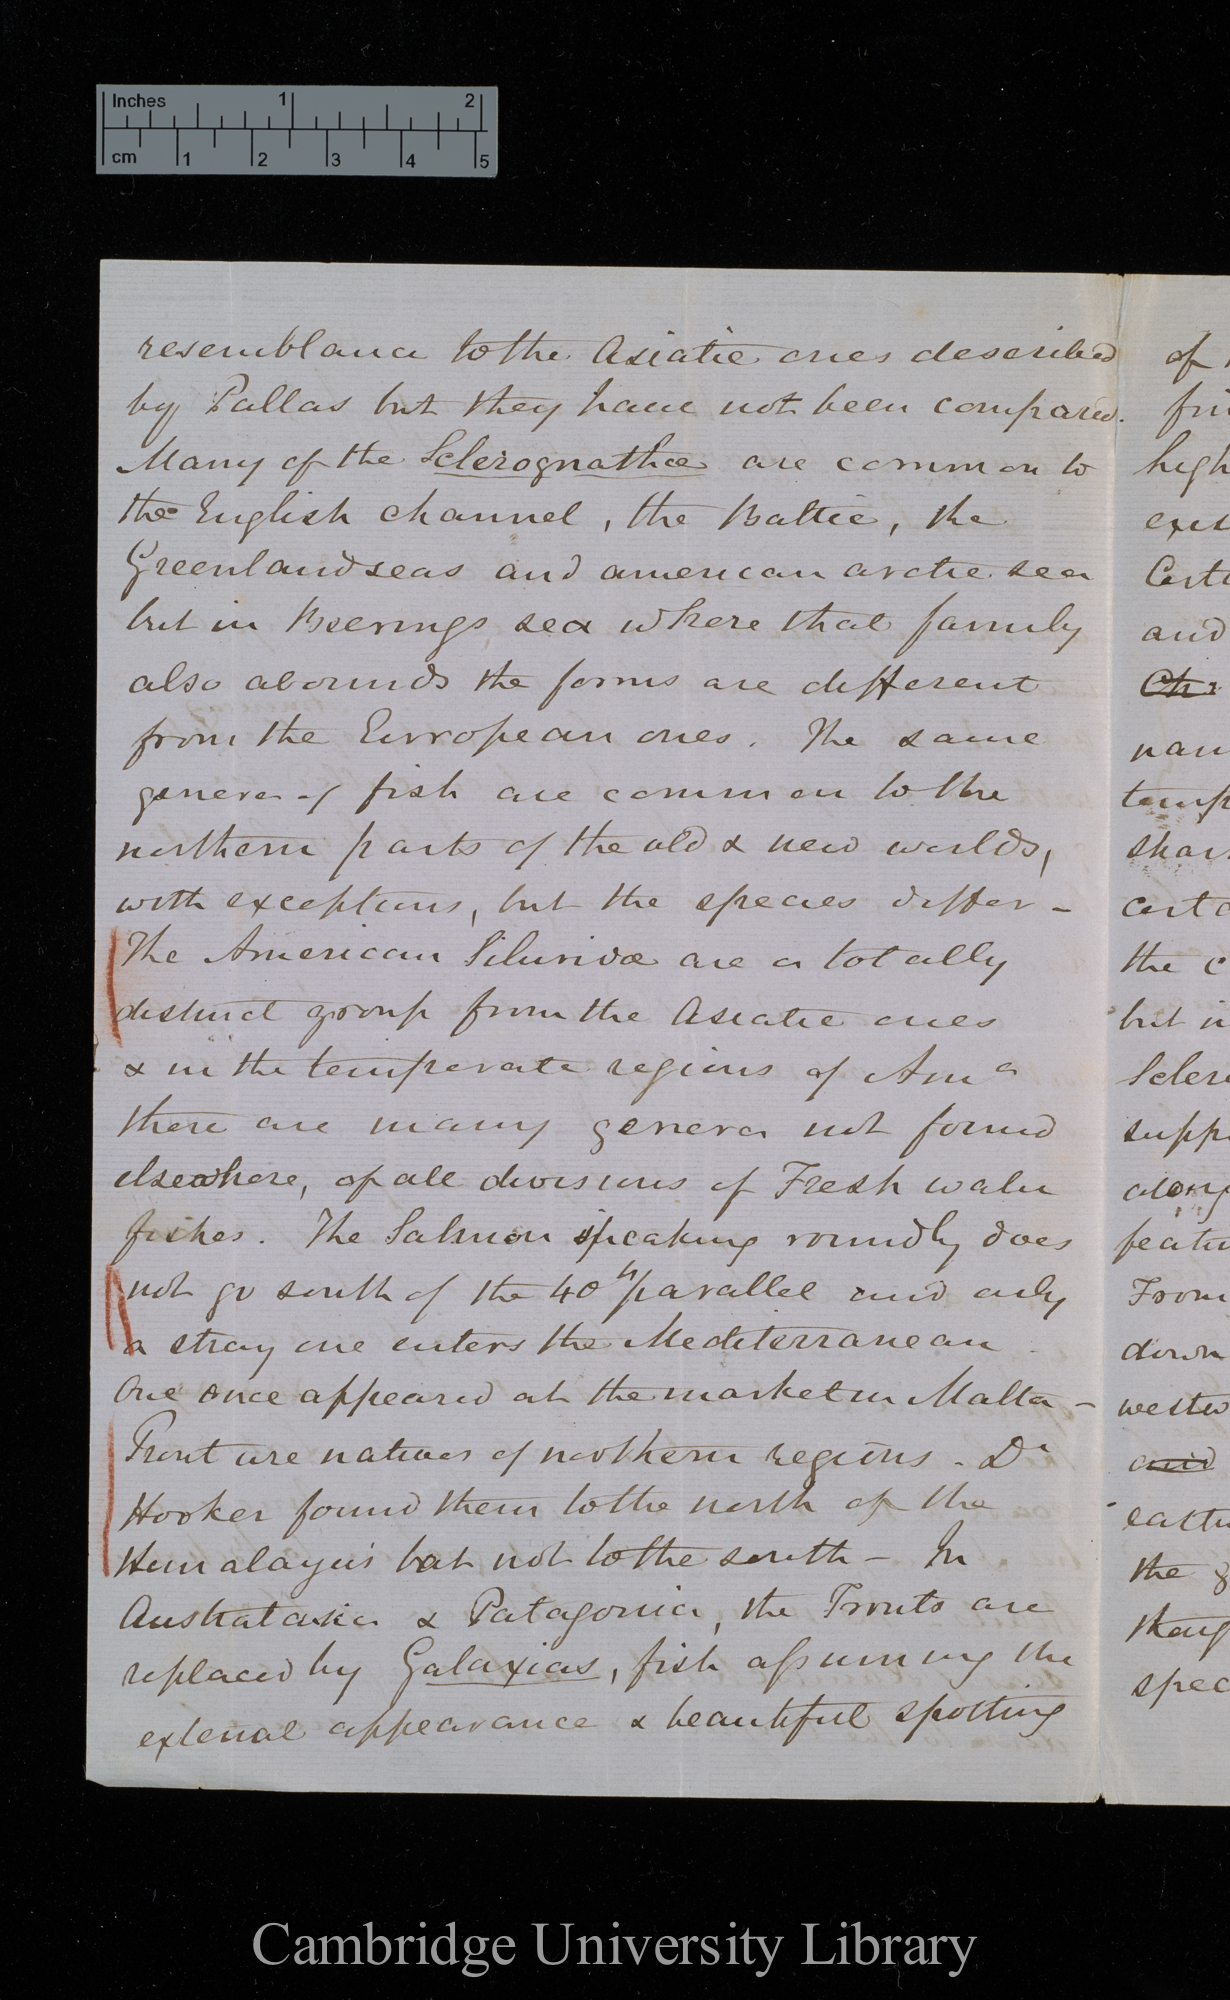 Inches 1 2
cm 1 2 3 4 5
resemblance to the Asiatic ones described
by Pallas but they have not been compared.
Many of the Sclerognathæ are common to
the English channel, the Baltic, the
Greenland seas and american arctic sea
but in Beerings sea where that family
also abounds the forms are different
from the European ones. The same
genera of fish are common to the
northern parts of the old & new worlds,
with exceptions, but the species differ –
The American Siluridæ are a totally
distinct group from the Asiatic ones
& in the temperate regions of Ama
there are many genera not found
elsewhere, of all divisions of Fresh water
fishes. The Salmon speaking roundly does
not go south of the 40th parallel and only
a stray one enters the Mediterranean.
One once appeared at the market in Malta –
Trout are natives of northern regions – Dr
Hooker found them to the north of the
Himalaya's but not to the south – In
Australasia & Patagonia, the Trouts are
replaced by Galaxias, fish assuming the
external appearance & beautiful spotting
of
high
and
the
but
along
From
down
the
Cambridge University Library